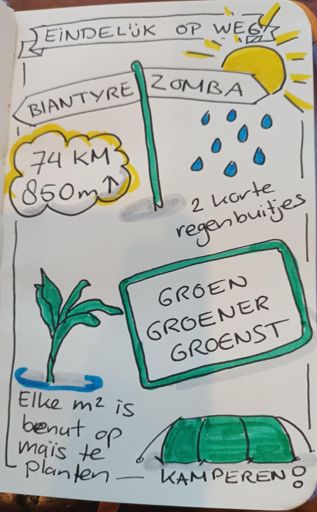 EINDELIJK OP WEG
BIANTYRE ZOMBA
74 KM
850m↑
2 korte
regenbuitjes
GROEN
GROENER
GROENST
Elke m² is
benut op
maïs te
planten
KAMPEREN!